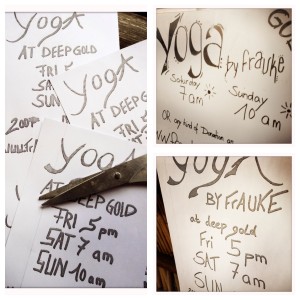 YOGA
AT DEEP GOLD
FRI 5
SAT
SUN
YOGA
AT DEEP GOLD
YOGA
AT DEEP GOLD
FRI 5 pm
SAT 7 am
SUN 10 am
yoga: by FRAUKE
Saturday
7 am
Sunday
10 am
OR any kind of Donation
YOGA
BY FRAUKE
at deep gold
Fri 5 pm
SAT 7 am
SUN